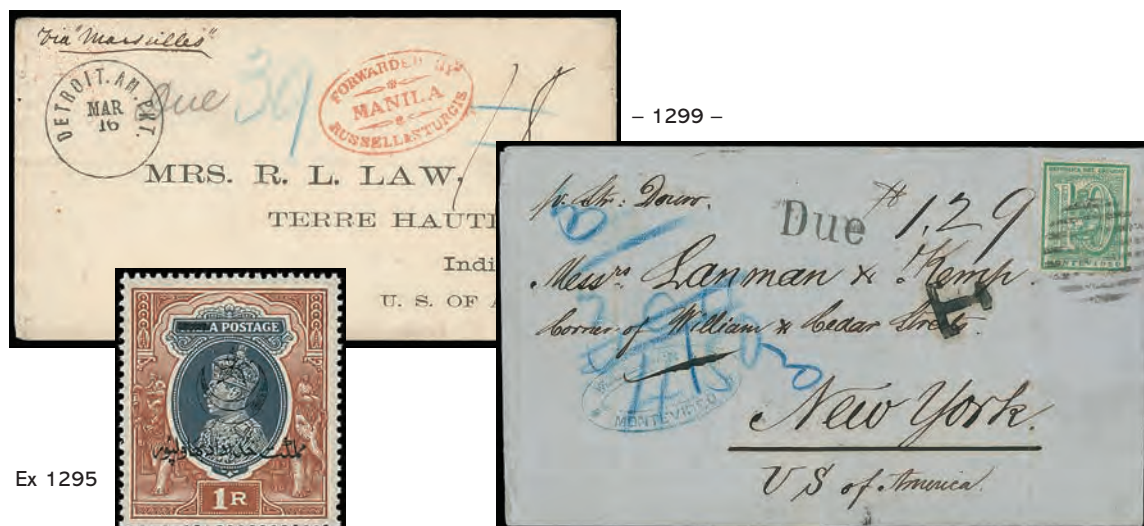 via "Marseilles"
DETROIT. AM. EXT.
MAR
16
due 39
FORWARDED BY
MANILA
RUSSELL & STURGIS
MRS. R. L. LAW,
TERRE HAUT
Indi
U. S. OF
– 1299 –
pr. Str: Douro.
Due 1,29
Messrs Lanman & Kemp.
T
Corner of William & Cedar Streets.
MONTEVIDEO
New York.
U S of America.
10
MONTEVIDEO
A POSTAGE
1 R
Ex 1295